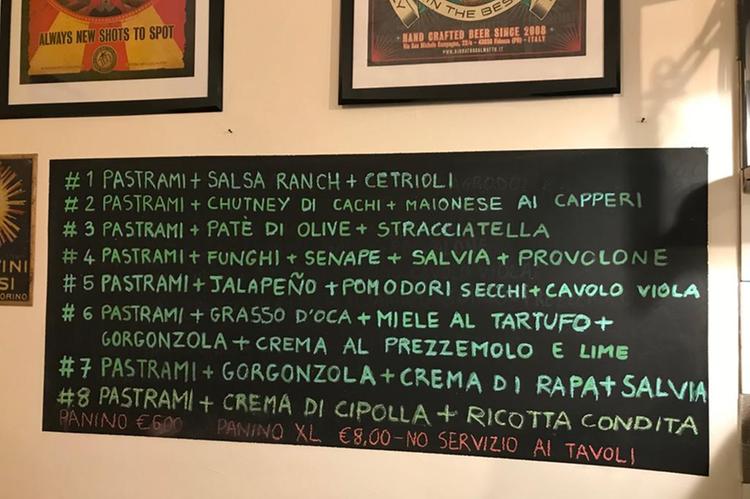 ALWAYS NEW SHOTS TO SPOT
IN THE BEST
HAND CRAFTED BEER SINCE 2008
#1 PASTRAMI + SALSA RANCH + CETRIOLI
#2 PASTRAMI + CHUTNEY DI CACHI + MAIONESE AI CAPPERI
#3 PASTRAMI + PATÈ DI OLIVE + STRACCIATELLA
#4 PASTRAMI + FUNGHI + SENAPE + SALVIA + PROVOLONE
#5 PASTRAMI + JALAPEÑO + POMODORI SECCHI + CAVOLO VIOLA
#6 PASTRAMI + GRASSO D'OCA + MIELE AL TARTUFO +
GORGONZOLA + CREMA AL PREZZEMOLO E LIME
#7 PASTRAMI + GORGONZOLA + CREMA DI RAPA + SALVIA
#8 PASTRAMI + CREMA DI CIPOLLA + RICOTTA CONDITA
PANINO €600 PANINO XL €8,00 - NO SERVIZIO AI TAVOLI
INI
SI
TORINO